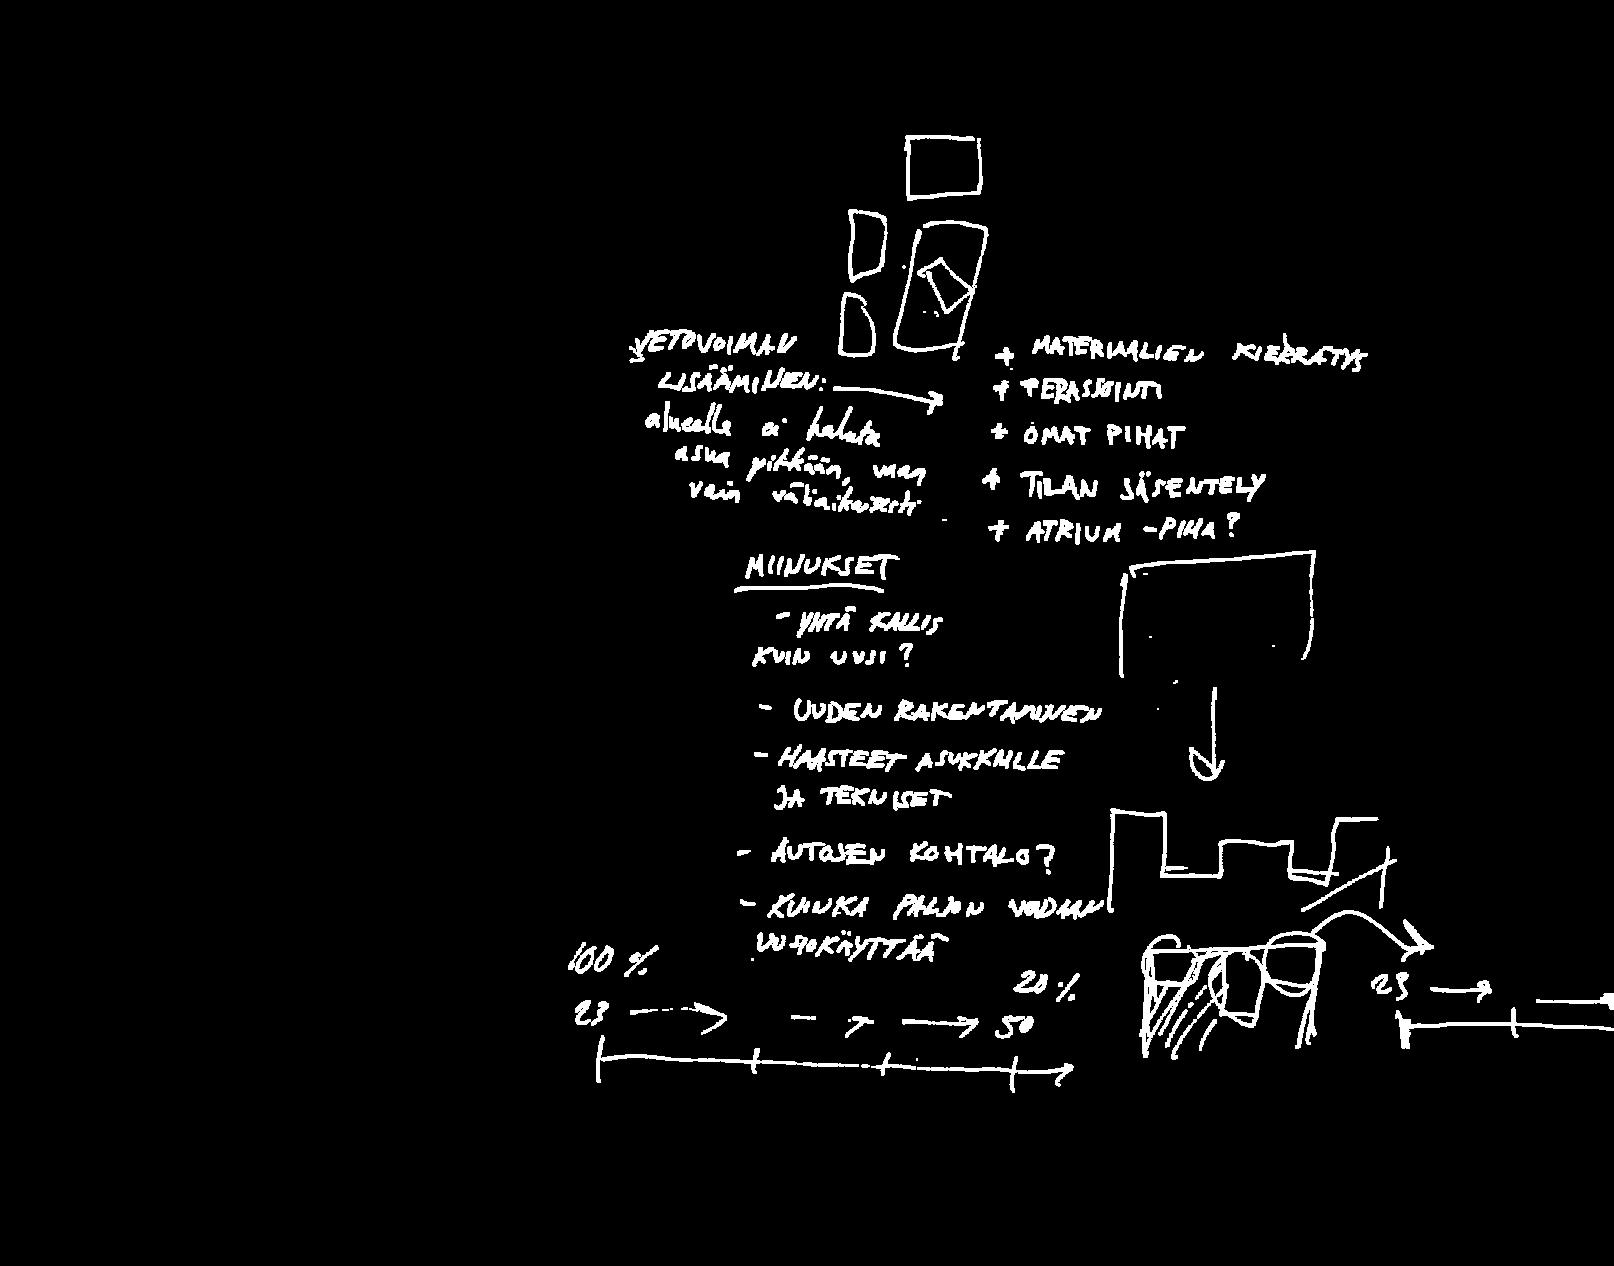 VETOVOIMAN
LISÄÄMINEN:
alueelle ei haluta
asua pitkään, vaan
vain väliaikaisesti
+ MATERIAALIEN KIERRÄTYS
+ TERASSOINTI
+ OMAT PIHAT
+ TILAN JÄSENTELY
+ ATRIUM -PIHA?
MIINUKSET
- YHTÄ KALLIS
KUIN UUSI?
- UUDEN RAKENTAMINEN
- HAASTEET ASUKKAILLE
JA TEKNISET
- AUTOJEN KOHTALO?
- KUINKA PALJON VOIDAAN
UUSIOKÄYTTÄÄ
100 %
20 %
23
50
23